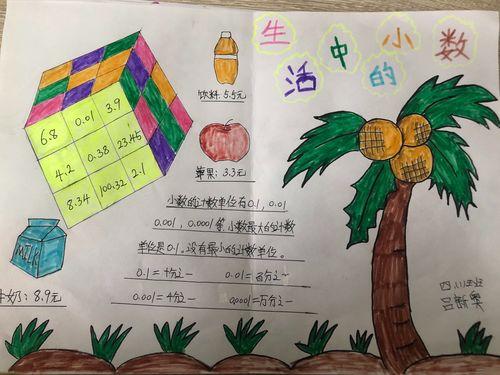 生活中的小数
饮料:5.5元
6.8 0.01 3.9
4.2 0.38 23.45
8.34 100.32 2.1
苹果:3.3元
小数的计数单位有0.1,0.01
0.001,0.0001等小数最大的计数
单位是0.1.没有最小的计数单位。
0.1=十分之一 0.01=百分之一
0.001=千分之一 0.0001=万分之一
MILK
牛奶:8.9元